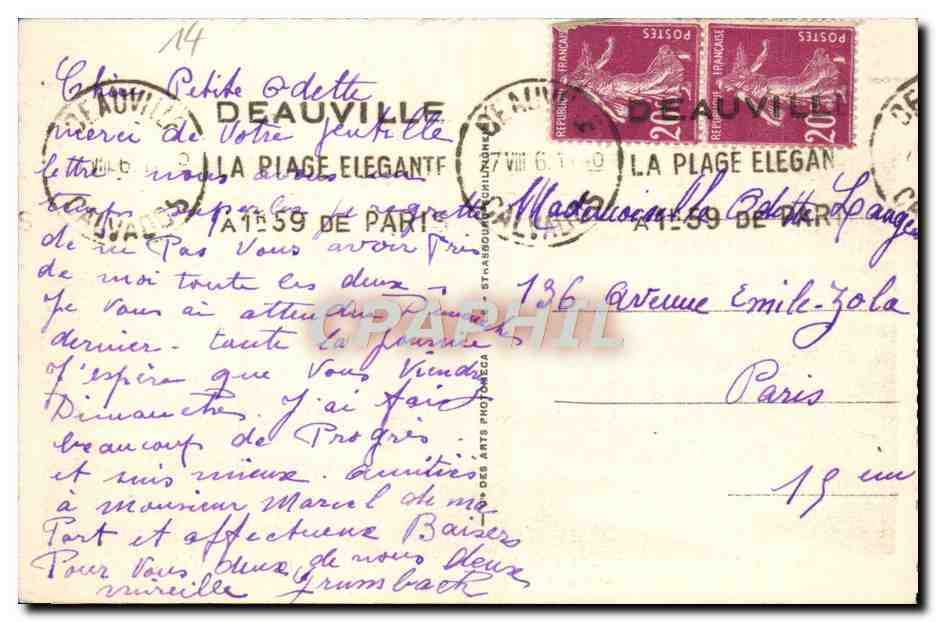 14
Chère Petite Odette
merci de Votre Jentille
lettre nous avons un
temps superbe je regrette
de ne Pas Vous avoir Près
de moi toute les deux -
Je Vous ai attendu Dimanche
dernier - toute la Journée
J'espère que Vous Viendrez
Dimanche. J'ai fais
beaucoup de Progrès.
et suis mieux. amitiés
à monsieur Marcel de ma
Part et affectueux Baisers
Pour Vous deux de nous deux
mireille Grumbach
DEAUVILLE
CALVADOS
DEAUVILLE
LA PLAGE ELEGANTE
A 1h59 DE PARIS
DEAUVILLE
7 VIII 6
CALVADOS
DEAUVILLE
LA PLAGE ELEGAN
A 1h59 DE PAR
REPUBLIQUE FRANÇAISE
POSTES
20c
REPUBLIQUE FRANÇAISE
POSTES
20c
Mademoiselle Odette Langer
136 avenue Emile-Zola
Paris
15 ème
DES ARTS PHOTOMECA - STRASBOURG-SCHILTIGHEIM
CPAPHIL